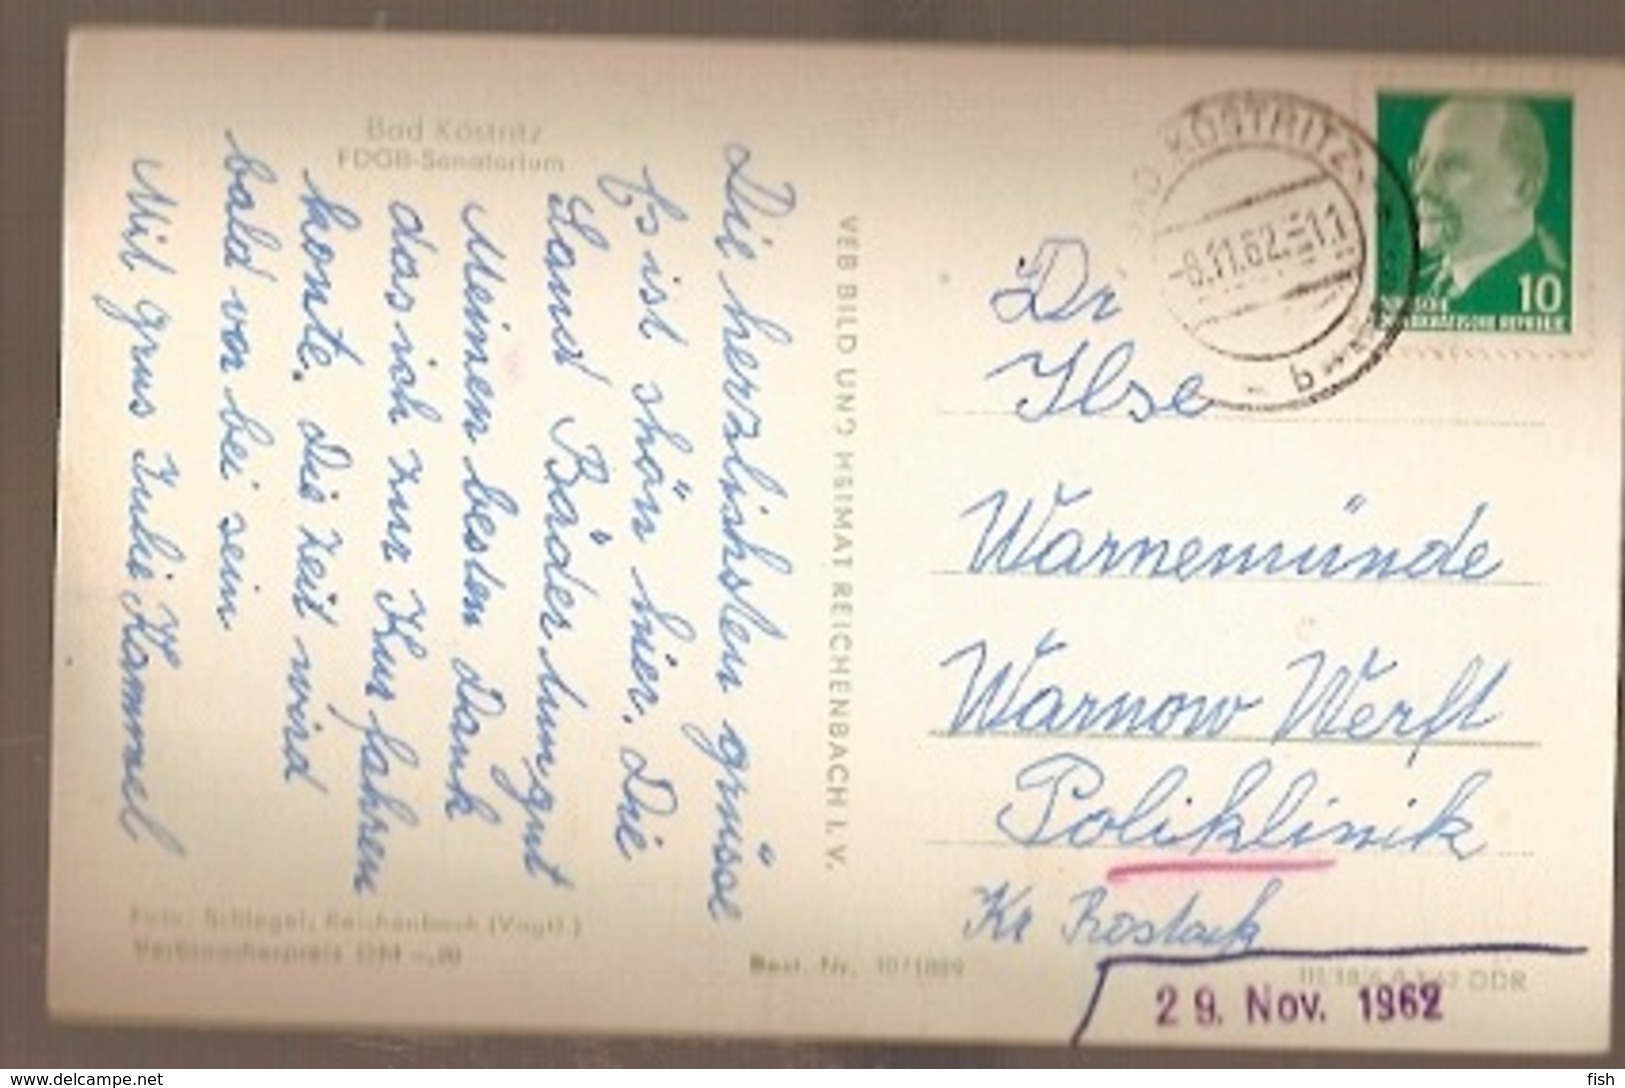 Bad Köstritz
FDGB-Sanatorium
Die herzlishsten grüsse
Es ist shön hier. Die
Land Bäder tun gut
Meinen besten Dank
das ich zur Kur fahren
konte. Die Zeit wird
bald vor bei sein
Mit grus Julie Hammel
Foto: Schlegel, Reichenbach (Vogtl.)
Verbraucherpreis DM -,20
VEB BILD UND HEIMAT REICHENBACH I. V.
Best. Nr. 10/1889
BAD KÖSTRITZ
-8.11.62.-11
b
10
DEUTSCHE
DEMOKRATISCHE REPUBLIK
Dr
Ilse
Warnemünde
Warnow Werft
Poliklinik
Kr Rostock
DDR
29. Nov. 1962
www.delcampe.net
fish